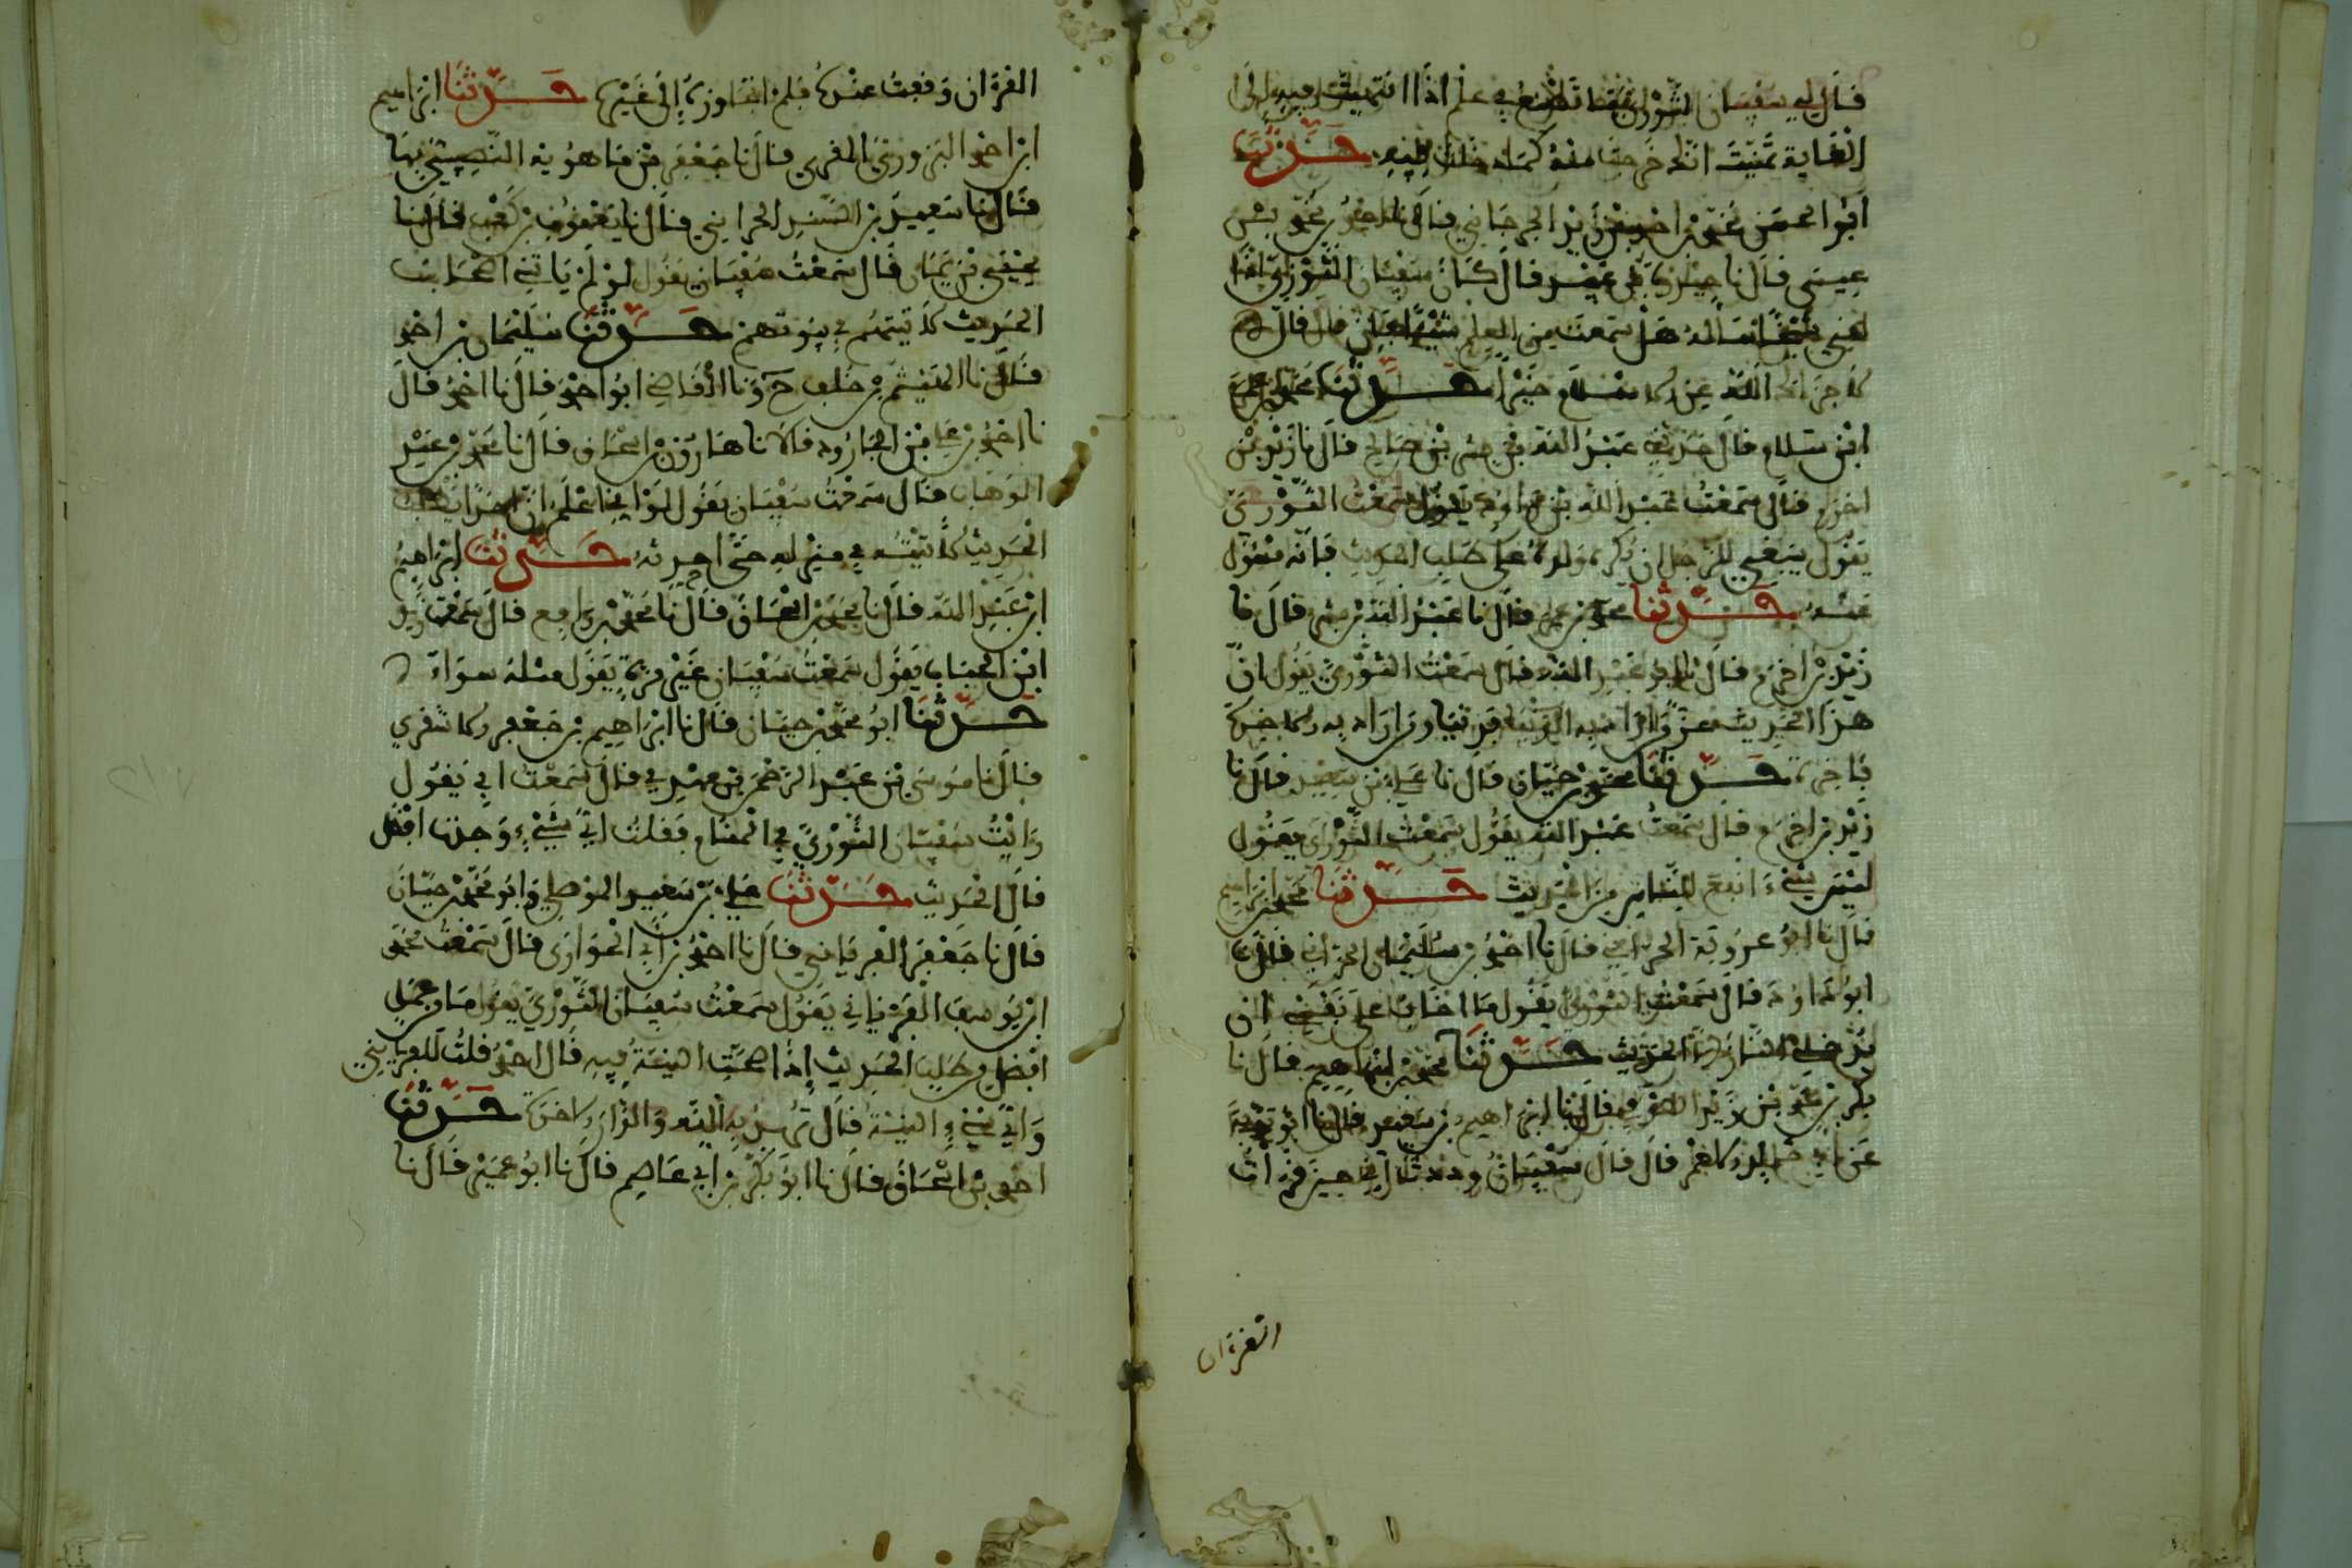 قال لي سفيان الثوري فما تصنع بعلم اذا انتهيت فيه الى
الغاية تمنيت انك خرجت منه كما دخلت فيه حدثنا
ابو الحسن محمد بن احمد الجرجاني قال نا احمد بن محمد بن
عيسى قال نا قال كان سفيان الثوري اذا
لقي شيخا سأله هل سمعت من العلم شيئا فان قال
لا جزاك الله عن الاسلام خيرا حدثنا محمد
ابن سلام قال حدثني عبد الله بن بن صالح قال نا زيد بن
اخزم قال سمعت عبد الله بن داود يقول سمعت الثوري
يقول ينبغي للرجل ان يكره ولده على طلب الحديث فانه مسئول
عنه حدثنا محمد بن علي قال نا عبد الله بن قال نا
زيد بن اخزم قال نا عبد الله قال سمعت الثوري يقول ان
هذا الحديث عز من اراد به الدنيا فدنيا ومن اراد به الاخرة
فاخرة حدثنا محمد بن حيان قال نا علي بن سعيد قال نا
زيد بن اخزم قال سمعت عبد الله يقول سمعت الثوري يقول
ليس شيء انفع للناس من الحديث حدثنا محمد بن ابراهيم
قال نا ابو عروبة الحراني قال نا احمد بن سليمان الحراني قال نا
ابو داود قال سمعت الثوري يقول ما اخاف على نفسي ان
يدخلني النار الا الحديث حدثنا محمد بن ابراهيم قال نا
بكر بن محمد بن زيد قال نا ابراهيم بن سعيد قال نا ابو توبة
عن ابي خالد الاحمر قال قال سفيان وددت اني حين قرات
القرءان
القرءان وقفت عنده فلم اتجاوزه الى غيره حدثنا ابراهيم
ابن احمد البزوري المقرئ قال نا جعفر بن النصيبي بها
قال نا سعيد بن الحراني قال نا يعقوب بن كعب قال نا
يحيى بن يمان قال سمعت سفيان يقول لو لم ياتني اصحاب
الحديث لاتيتهم في بيوتهم حدثنا سليمان بن احمد
قال نا الهيثم بن خلف ح ونا القاضي ابو احمد قال نا احمد قال
نا احمد بن علي بن الجارود قالا نا هارون بن اسحاق قال نا محمد بن عبد
الوهاب قال سمعت سفيان يقول لو اني اعلم ان احدا يطلب
الحديث لاتيته في منزله حتى احدثه حدثنا ابراهيم
ابن عبد الله قال نا محمد بن اسحاق قال نا محمد بن رافع قال سمعت زيد
ابن الحباب يقول سمعت سفيان غير مرة يقول مثله سواء
حدثنا ابو محمد بن حيان قال نا ابراهيم بن جعفر الاشعري
قال نا موسى بن عبد الرحمن بن مهدي قال سمعت ابي يقول
رايت سفيان الثوري في المنام فقلت اي شيء وجدت افضل
قال الحديث حدثنا علي بن سعيد الموصلي وابو محمد بن حيان
قال نا جعفر الفريابي قال نا احمد بن ابي الحواري قال سمعت محمد
ابن يوسف الفريابي يقول سمعت سفيان الثوري يقول ما من عمل
افضل من طلب الحديث اذا صحت النية فيه قال احمد قلت للفريابي
واي شيء النية قال تريد به الله والدار الاخرة حدثنا
احمد بن اسحاق قال نا ابو بكر بن ابي عاصم قال نا ابو عمير قال نا